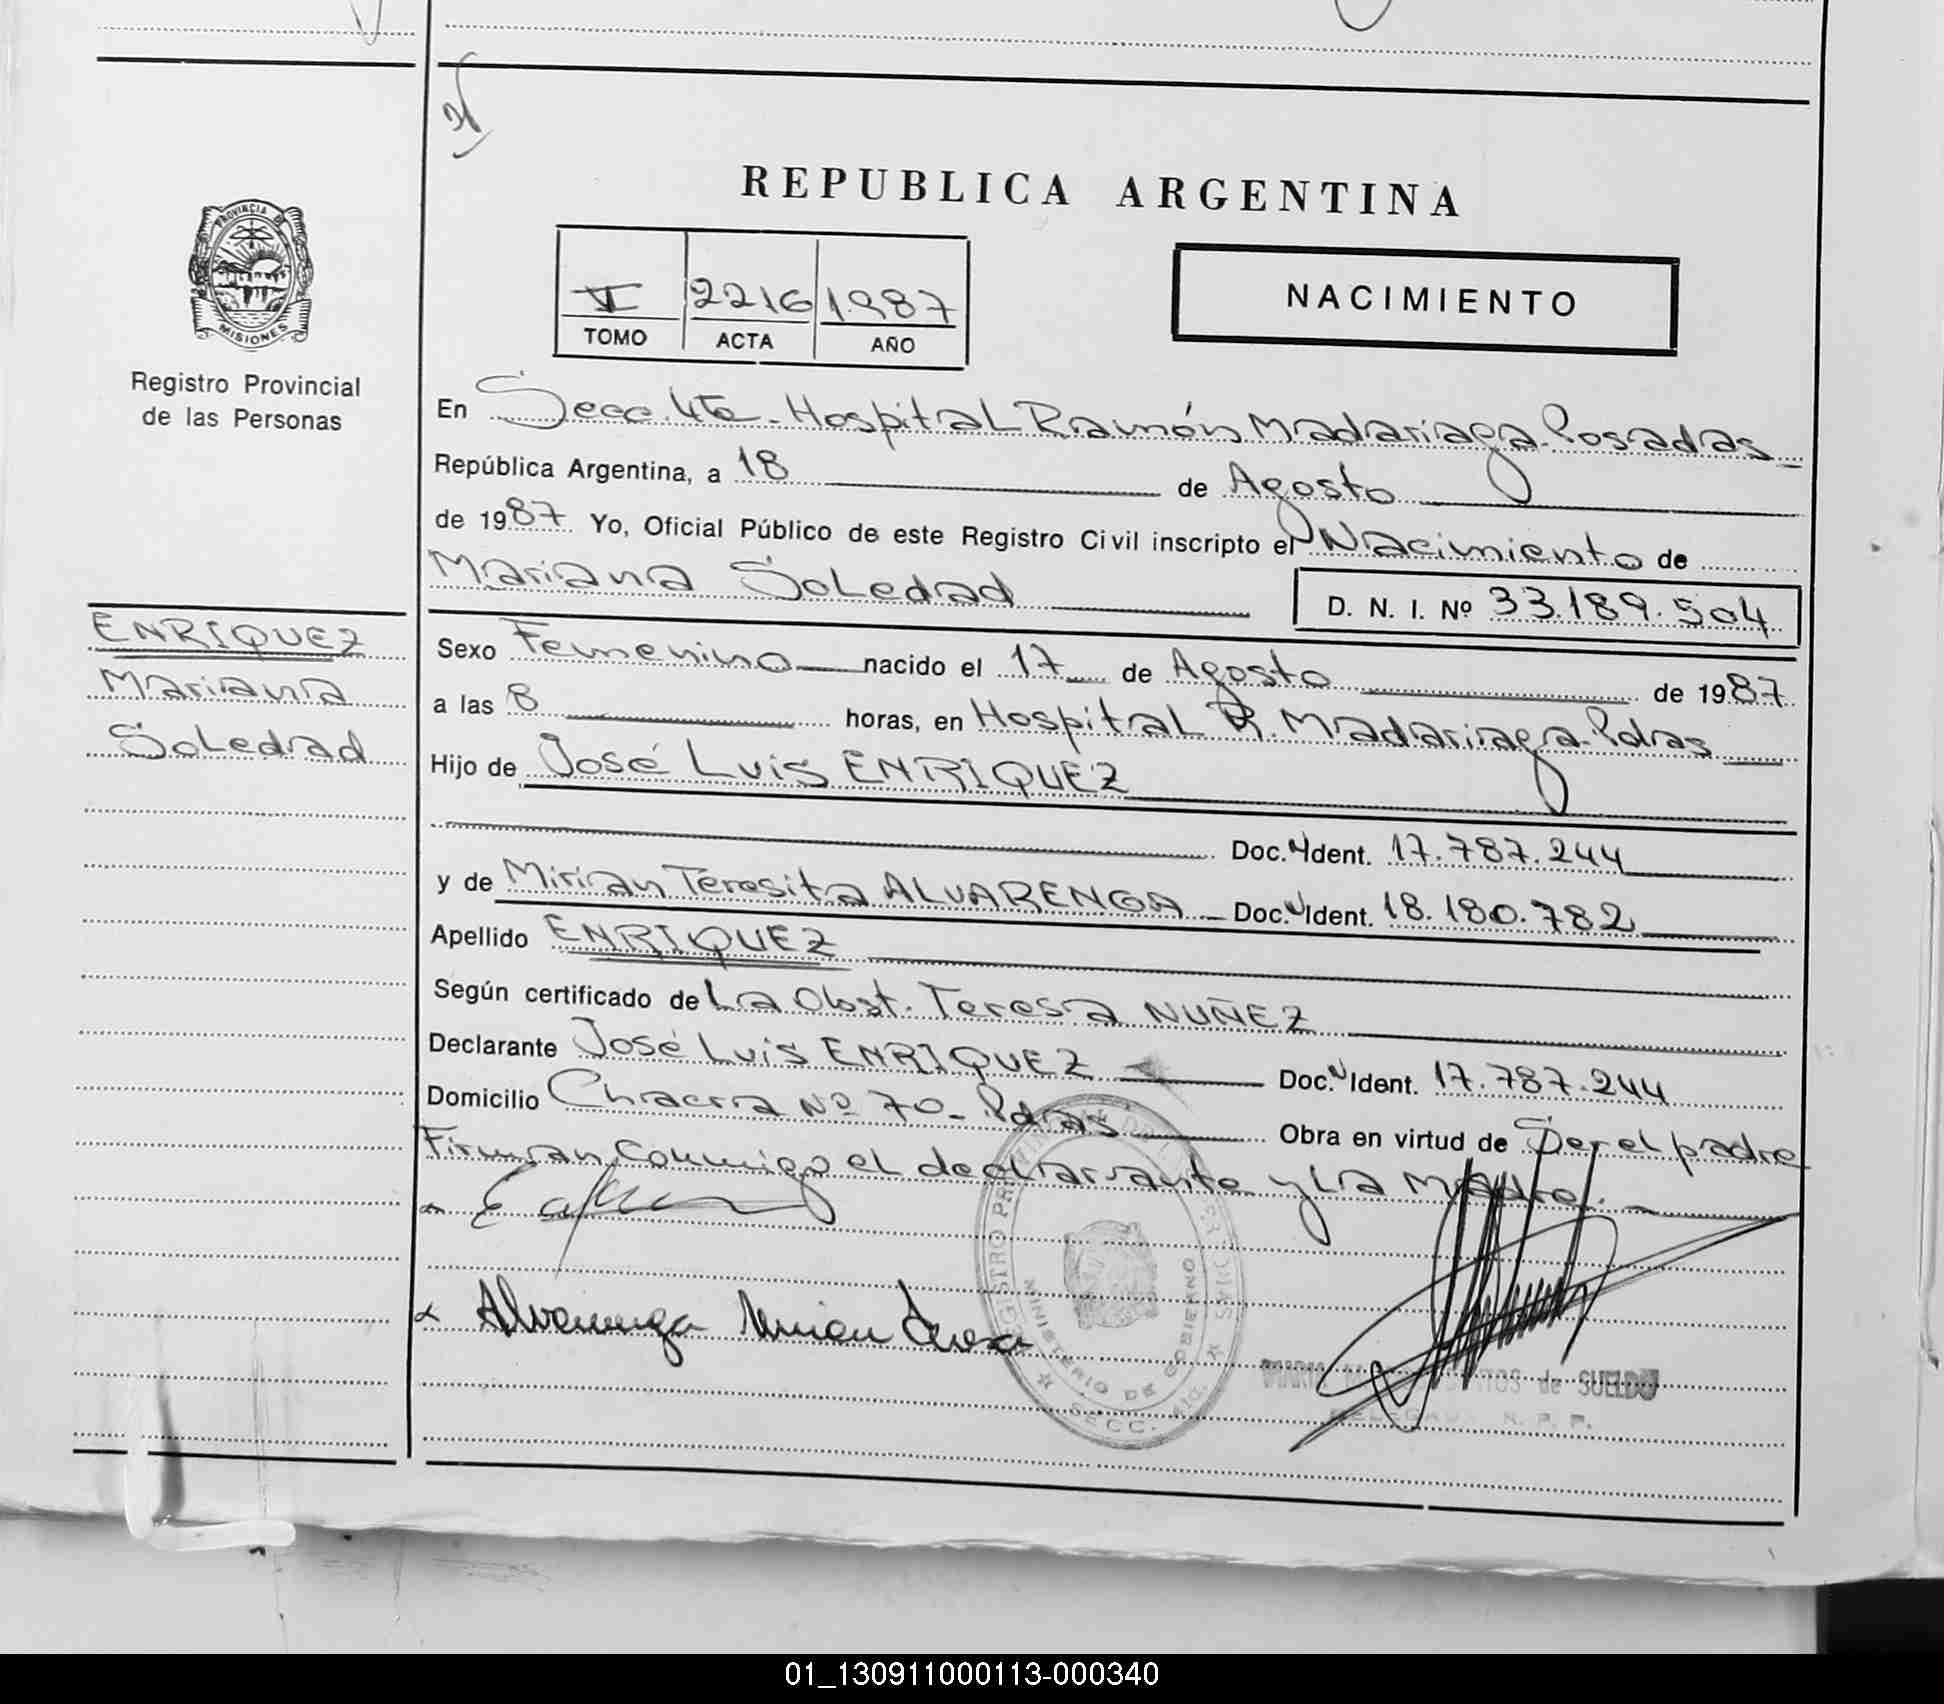 REPUBLICA ARGENTINA
PROVINCIA DE
MISIONES
Registro Provincial
de las Personas
V 2216 1987
TOMO ACTA AÑO
NACIMIENTO
En Secc. 4ta - Hospital Ramón Madariaga - Posadas
República Argentina, a 18 de Agosto
de 1987 Yo, Oficial Público de este Registro Civil inscripto el Nacimiento de
Mariana Soledad D. N. I. Nº 33.189.504
ENRIQUEZ
Mariana
Soledad
Sexo Femenino nacido el 17 de Agosto de 1987
a las 8 horas, en Hospital R. Madariaga - Pdas
Hijo de José Luis ENRIQUEZ
Doc. Ident. 17.787.244
y de Mirian Teresita ALVARENGA - Doc. Ident. 18.180.782
Apellido ENRIQUEZ
Según certificado de La Obst. Teresa NUÑEZ
Declarante José Luis ENRIQUEZ Doc. Ident. 17.787.244
Domicilio Chacra Nº 70 - Pdas Obra en virtud de Ser el padre
Firman conmigo el declarante y la Madre.
Alvarenga Mirian Teresa
REGISTRO PROVINCIAL DE LAS PERSONAS
MINISTERIO DE GOBIERNO
SECC.
MARIA de SUELDO
R. P. P.
01_130911000113-000340